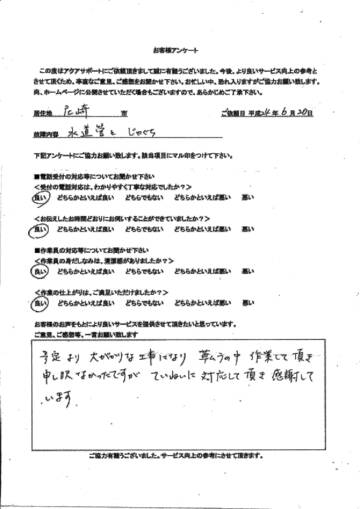 お客様アンケート
この度はアクアサポートにご依頼頂きまして誠に有難うございました。今後、より良いサービス向上の参考と
させて頂くため、率直なご意見、ご感想をお聞かせ下さい。お忙しい中、恐れ入りますがご協力お願い致します。
尚、ホームページに公開させていただく場合もございますので、あらかじめご了承下さい。
居住地 市 ご依頼日 平成24年6月20日
故障内容 水道管と じゃぐち
下記アンケートにご協力お願い致します。該当項目にマル印をつけて下さい。
■電話受付の対応等についてお聞かせ下さい
<受付の電話対応は、わかりやすく丁寧な対応でしたか?>
良い どちらかといえば良い どちらでもない どちらかといえば悪い 悪い
<お伝えしたお時間どおりにお伺いすることができていましたか?>
良い どちらかといえば良い どちらでもない どちらかといえば悪い 悪い
■作業員の対応等についてお聞かせ下さい
<作業員の身だしなみは、清潔感がありましたか?>
良い どちらかといえば良い どちらでもない どちらかといえば悪い 悪い
<作業の仕上がりは、ご満足いただけましたか?>
良い どちらかといえば良い どちらでもない どちらかといえば悪い 悪い
お客様のお声をもとにより良いサービスを提供させて頂きたいと思っています。
ご意見、ご感想等、一言お願い致します
予定より 大がかりな工事になり 草むらの中 作業して頂き
申し訳なかったですが ていねいに対応して頂き 感謝して
います
ご協力有難うございました。サービス向上の参考にさせて頂きます。